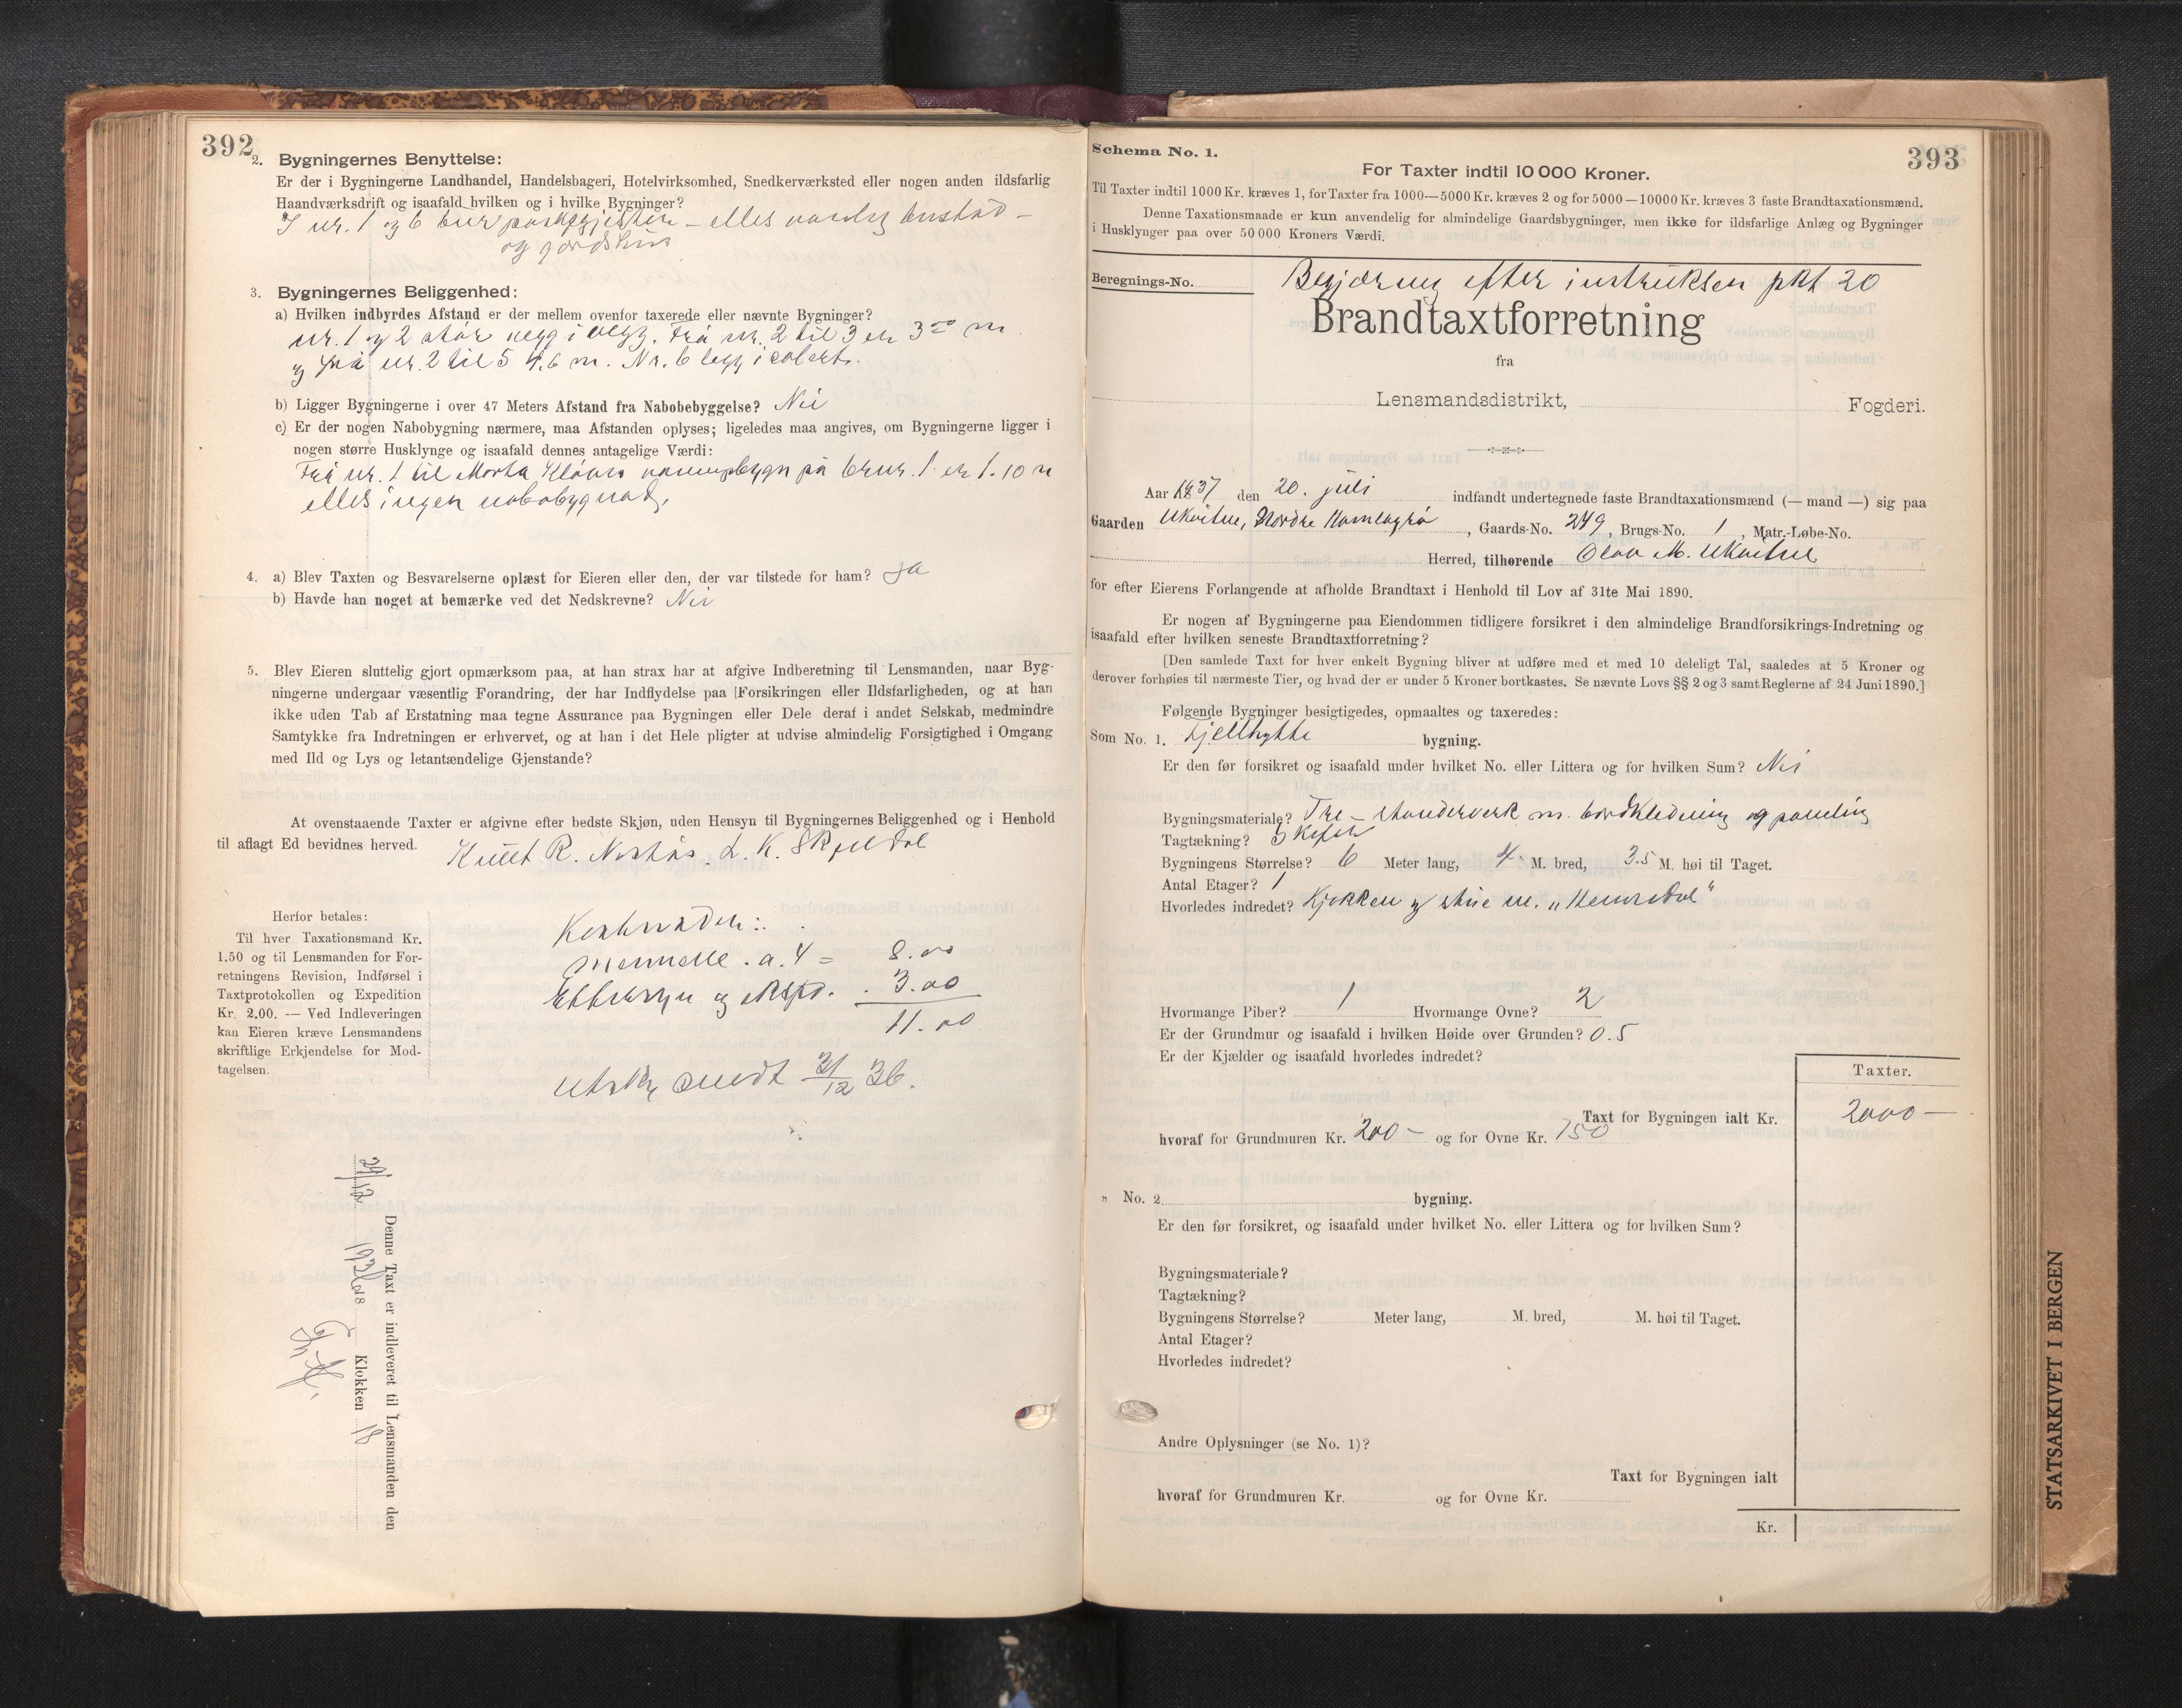 392
2. Bygningernes Benyttelse:
Er der i Bygningerne Landhandel, Handelsbageri, Hotelvirksomhed, Snedkerværksted eller nogen anden ildsfarlig
Haandværksdrift og isaafald hvilken og i hvilke Bygninger?
I nr. 1 og 6 bur - elles vanleg bustad -
og gardshus
3. Bygningernes Beliggenhed:
a) Hvilken indbyrdes Afstand er der mellem ovenfor taxerede eller nævnte Bygninger?
nr. 1 og 2 står vegg i vegg. Frå nr. 2 til 3 er 3 00 m
og frå nr. 2 til 5 4.6 m. Nr. 6 ligg isolert.
b) Ligger Bygningerne i over 47 Meters Afstand fra Nabobebyggelse? Nei
c) Er der nogen Nabobygning nærmere, maa Afstanden oplyses; ligeledes maa angives, om Bygningerne ligger i
nogen større Husklynge og isaafald dennes antagelige Værdi:
Frå nr. 1 til på brnr. 1 er 1.10 m
elles ingen
4. a) Blev Taxten og Besvarelserne oplæst for Eieren eller den, der var tilstede for ham? Ja
b) Havde han noget at bemærke ved det Nedskrevne? Nei
5. Blev Eieren sluttelig gjort opmærksom paa, at han strax har at afgive Indberetning til Lensmanden, naar Byg-
ningerne undergaar væsentlig Forandring, der har Indflydelse paa Forsikringen eller Ildsfarligheden, og at han
ikke uden Tab af Erstatning maa tegne Assurance paa Bygningen eller Dele deraf i andet Selskab, medmindre
Samtykke fra Indretningen er erhvervet, og at han i det Hele pligter at udvise almindelig Forsigtighed i Omgang
med Ild og Lys og letantændelige Gjenstande?
At ovenstaaende Taxter er afgivne efter bedste Skjøn, uden Hensyn til Bygningernes Beliggenhed og i Henhold
til aflagt Ed bevidnes herved.
Knut R. L. K. Skjeldal
Herfor betales:
Til hver Taxationsmand Kr.
1.50 og til Lensmanden for For-
retningens Revision, Indførsel i
Taxtprotokollen og Expedition
Kr. 2.00. — Ved Indleveringen
kan Eieren kræve Lensmandens
skriftlige Erkjendelse for Mod-
tagelsen.
Kostnaden:
Mennene . a. 4 = 8.00
Ettersyn og ekspd. . 3.00
11.00
Utskr. sendt 31/12 36.
Denne Taxt er indleveret til Lensmanden den
29/12 1936 18 Klokken 18
Schema No. 1.
393
For Taxter indtil 10 000 Kroner.
Til Taxter indtil 1000 Kr. kræves 1, for Taxter fra 1000—5000 Kr. kræves 2 og for 5000—10000 Kr. kræves 3 faste Brandtaxationsmænd.
Denne Taxationsmaade er kun anvendelig for almindelige Gaardsbygninger, men ikke for ildsfarlige Anlæg og Bygninger
i Husklynger paa over 50 000 Kroners Værdi.
Beregnings-No.
Begjæring efter instruksen pkt 20
Brandtaxtforretning
fra
Lensmandsdistrikt, Fogderi.
Aar 1837 den 20. juli indfandt undertegnede faste Brandtaxationsmænd (— mand —) sig paa
Gaarden Ukvitne, Nordre Hamlagrø, Gaards-No. 249, Brugs-No. 1, Matr.-Løbe-No.
Herred, tilhørende Olav M. Ukvitne
for efter Eierens Forlangende at afholde Brandtaxt i Henhold til Lov af 31te Mai 1890.
Er nogen af Bygningerne paa Eiendommen tidligere forsikret i den almindelige Brandforsikrings-Indretning og
isaafald efter hvilken seneste Brandtaxtforretning?
[Den samlede Taxt for hver enkelt Bygning bliver at udføre med et med 10 deleligt Tal, saaledes at 5 Kroner og
derover forhøies til nærmeste Tier, og hvad der er under 5 Kroner bortkastes. Se nævnte Lovs §§ 2 og 3 samt Reglerne af 24 Juni 1890.]
Følgende Bygninger besigtigedes, opmaaltes og taxeredes:
Som No. 1. Fjellhytte bygning.
Er den før forsikret og isaafald under hvilket No. eller Littera og for hvilken Sum? Nei
Bygningsmateriale? Tre - standerverk m. bordkledning og paneling
Tagtækning? Skifer
Bygningens Størrelse? 6 Meter lang, 4 M. bred, 3.5 M. høi til Taget.
Antal Etager? 1
Hvorledes indredet? Kjøkken og stue m. „Hemsedal“
Hvormange Piber? 1 Hvormange Ovne? 2
Er der Grundmur og isaafald i hvilken Høide over Grunden? 0.5
Er der Kjælder og isaafald hvorledes indredet?
Taxter.
Taxt for Bygningen ialt Kr. 2000 —
hvoraf for Grundmuren Kr. 200 - og for Ovne Kr. 150
„ No. 2. bygning.
Er den før forsikret, og isaafald under hvilket No. eller Littera og for hvilken Sum?
Bygningsmateriale?
Tagtækning?
Bygningens Størrelse? Meter lang, M. bred, M. høi til Taget.
Antal Etager?
Hvorledes indredet?
Andre Oplysninger (se No. 1)?
Taxt for Bygningen ialt
hvoraf for Grundmuren Kr. og for Ovne Kr.
Kr.
STATSARKIVET I BERGEN